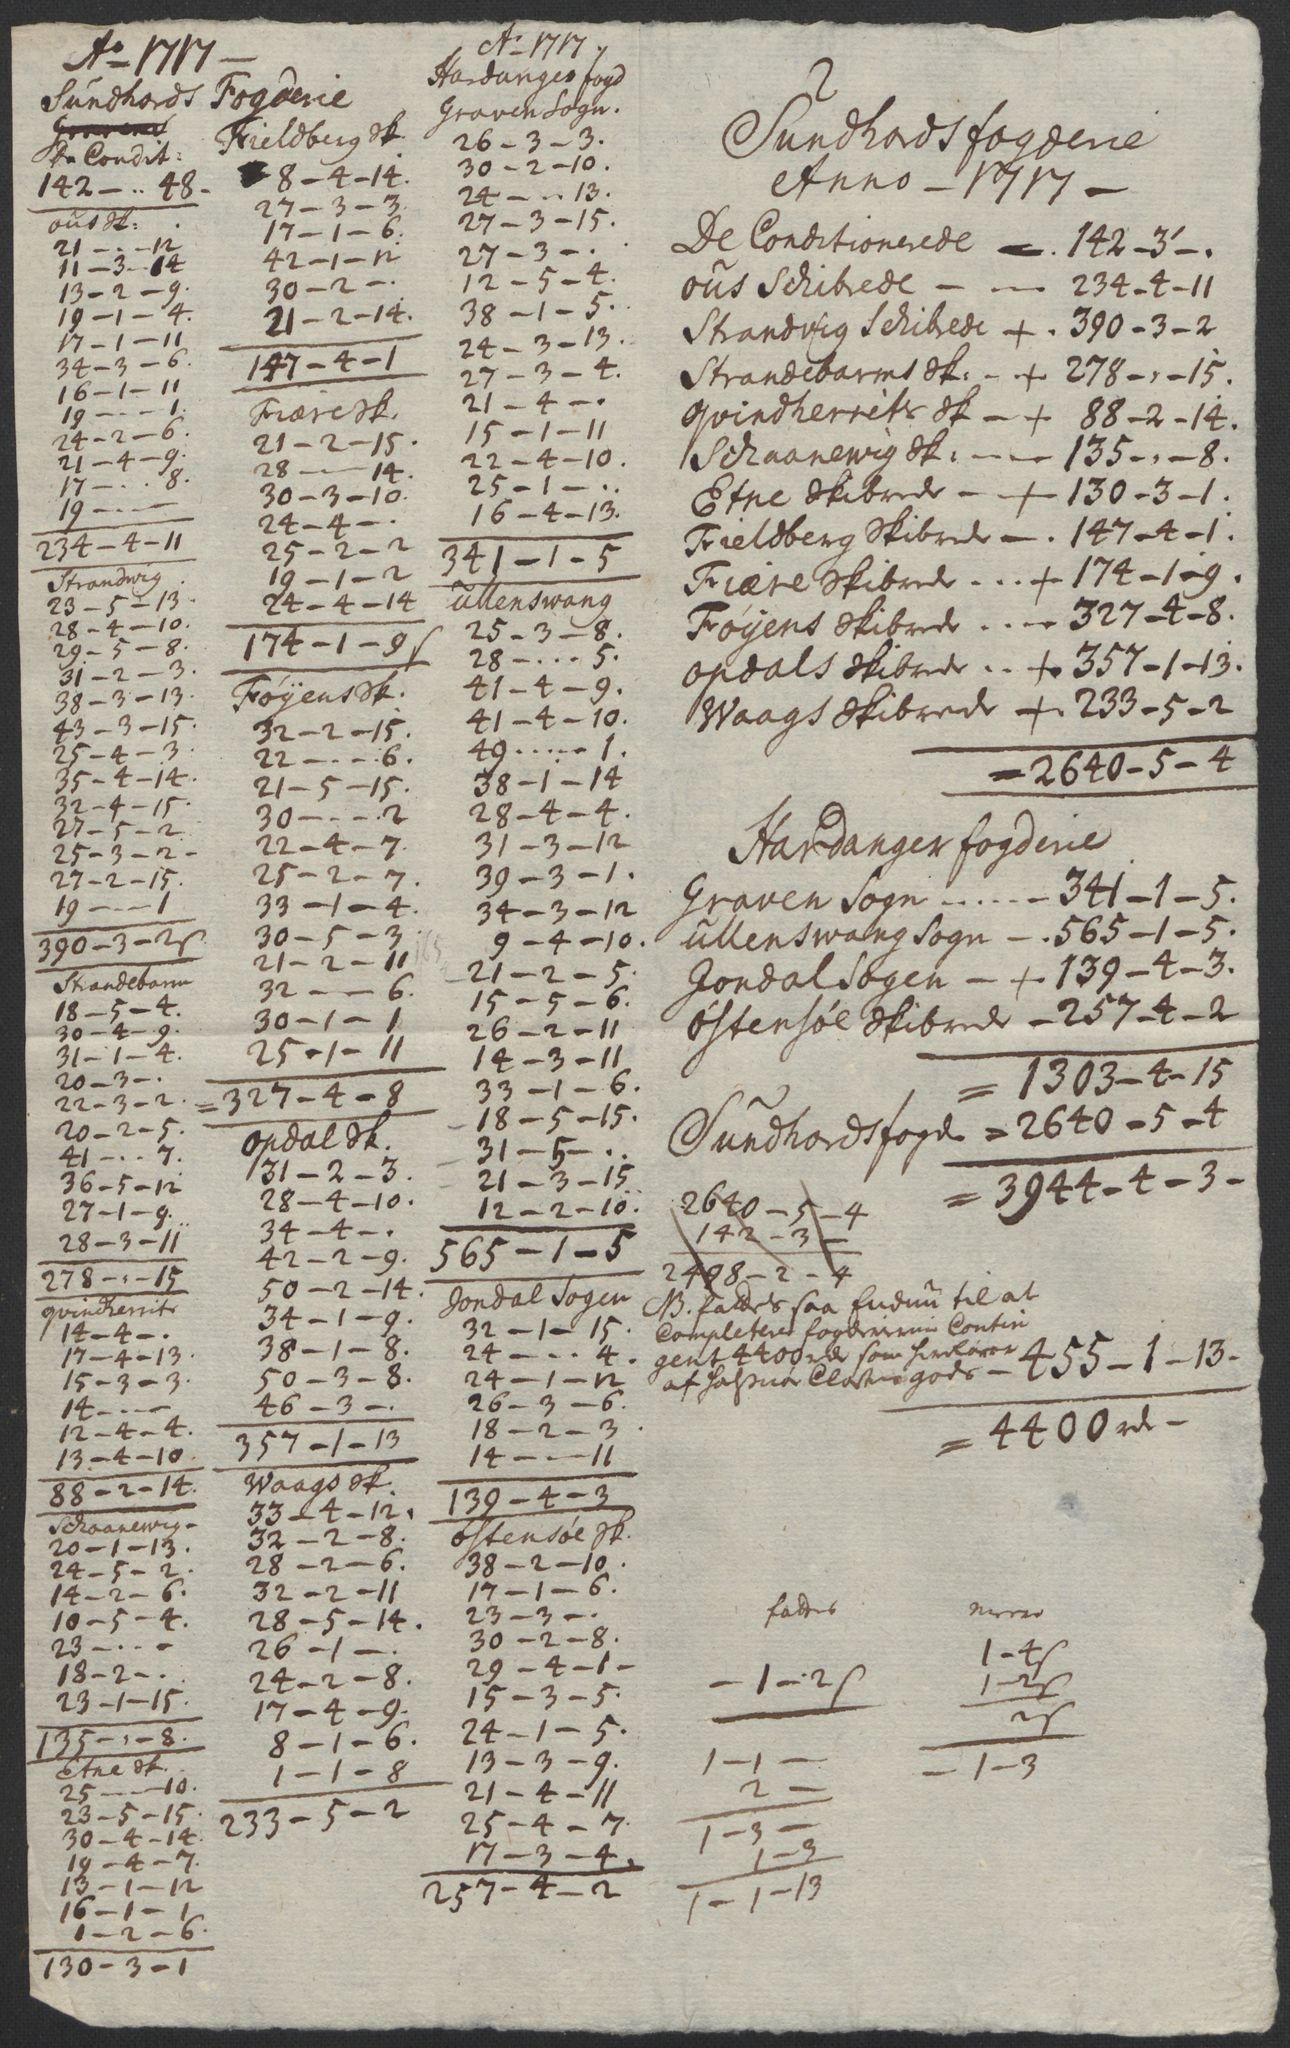 Ao 1717 —
Sundhords Fogderie
De Condit:
142 - .. 48 -
ous sk:
21 - .. - 12
11 - 3 - 14
13 - 2 - 9.
19 - 1 - 4.
17 - 1 - 11
34 - 3 - 6.
16 - 1 - 11
19 - .. - 1.
24 - 2 - 6.
21 - 4 - 9.
17 - .. 8.
19 - .. -
234 - 4 - 11
Strandwig
23 - 5 - 13.
28 - 4 - 10.
29 - 5 - 8.
31 - 2 - 3.
38 - 3 - 13.
43 - 3 - 15.
25 - 4 - 3.
35 - 4 - 14.
32 - 4 - 15.
27 - 5 - 2.
25 - 3 - 2 -
27 - 2 - 15.
19 - .. - 1
390 - 3 - 2 s
Strandebarm
18 - 5 - 4.
30 - 4 - 9.
31 - 1 - 4.
20 - 3 - .
22 - 3 - 2.
20 - 2 - 5.
41 - .. 7.
36 - 5 - 12
27 - 1 - 9.
28 - 3 - 11
278 - . - 15
qvindherrits
14 - 4 - .
17 - 4 - 13.
15 - 3 - 3.
14 - .. -
12 - 4 - 4.
13 - 4 - 10.
88 - 2 - 14.
Schaanewig -
20 - 1 - 13.
24 - 5 - 2.
14 - 2 - 6.
10 - 5 - 4.
23 - .. -
18 - 2 - .
23 - 1 - 15.
135 - . - 8.
Etne sk.
25 - .. - 10.
23 - 5 - 15.
30 - 4 - 14.
19 - 4 - 7.
13 - 1 - 12
16 - 1 - 1
1 - 2 - 6.
130 - 3 - 1
Fieldberg sk.
8 - 4 - 14.
27 - 3 - 3.
17 - 1 - 6.
42 - 1 - 12
30 - 2 - .
21 - 2 - 14.
147 - 4 - 1
Fiære sk.
21 - 2 - 15.
28 - .. - 14.
30 - 3 - 10.
24 - 4 - .
25 - 2 - 2
19 - 1 - 2
24 - 4 - 14
174 - 1 - 9 s
Føyens sk.
32 - 2 - 15.
22 - .. - 6.
21 - 5 - 15.
30 - .. - 2
22 - 4 - 7.
25 - 2 - 7.
33 - 1 - 4.
30 - 5 - 3.
21 - 2 - 11
32 - .. - 6.
30 - 1 - 1
25 - 1 - 11
= 327 - 4 - 8
opdal sk.
31 - 2 - 3.
28 - 4 - 10.
34 - 4 - .
42 - 2 - 9.
50 - 2 - 14.
34 - 1 - 9.
38 - 1 - 8.
50 - 3 - 8.
46 - 3 - .
357 - 1 - 13
Waags sk.
33 - 4 - 12.
32 - 2 - 8.
28 - 2 - 6.
32 - 2 - 11
28 - 5 - 14.
26 - 1 - .
24 - 2 - 8.
17 - 4 - 9.
8 - 1 - 6.
1 - 1 - 8
233 - 5 - 2
Ao 1717.
Hardanger fogd
Graven Sogn.
26 - 3 - 3.
30 - 2 - 10.
24 - .. 13.
27 - 3 - 15.
27 - 3 - .
12 - 5 - 4.
38 - 1 - 5.
24 - 3 - 13.
27 - 3 - 4.
21 - 4 - .
15 - 1 - 11
22 - 4 - 10.
25 - 1 - ..
16 - 4 - 13.
341 - 1 - 5
ullenswang
25 - 3 - 8.
28 - .. - 5.
41 - 4 - 9.
41 - 4 - 10.
49 - .. - 1.
38 - 1 - 14
28 - 4 - 4.
31 - 3 - 12
39 - 3 - 1.
34 - 3 - 12
9 - 4 - 10.
21 - 2 - 5.
15 - 5 - 6.
26 - 2 - 11
14 - 3 - 11
33 - 1 - 6.
18 - 5 - 15.
31 - 5 - ..
21 - 3 - 15
12 - 2 - 10.
565 - 1 - 5
Jondal Sogen
32 - 1 - 15.
24 - .. - 4.
24 - 1 - 12
26 - 3 - 6.
18 - 2 - 3.
14 - .. - 11
139 - 4 - 3
østensøe sk.
38 - 2 - 10.
17 - 1 - 6.
23 - 3 - .
30 - 2 - 8.
29 - 4 - 1 -
15 - 3 - 5.
24 - 1 - 5.
13 - 3 - 9.
21 - 4 - 11
25 - 4 - 7.
17 - 3 - 4.
257 - 4 - 2
Sundhords fogderie
Anno - 1717 -
De Conditionerede - . 142 - 3 - .
ous Schibrede - - 234 - 4 - 11
Strandvig Schibrede + . 390 - 3 - 2
Strandebarms sk: - + 278 - . - 15.
qvindherrits sk - + 88 - 2 - 14.
Schaanewig sk: - - 135 - . - 8.
Etne skibrede - + 130 - 3 - 1.
Fieldberg skibrede - . 147 - 4 - 1.
Fiære skibrede . . + 174 - 1 - 9.
Føyens skibrede . . - 327 - 4 - 8.
opdals skibrede . . + 357 - 1 - 13.
Waags skibrede + 233 - 5 - 2
= 2640 - 5 - 4
Hardanger fogderie
Graven Sogn . . . - 341 - 1 - 5.
ullenswang Sogn - . 565 - 1 - 5.
Jondal Sogen - + 139 - 4 - 3.
østensøe skibrede - 257 - 4 - 2
= 1303 - 4 - 15
Sundhords fogd. = 2640 - 5 - 4
= 3944 - 4 - 3 -
2640 - 5 - 4
142 - 3 -
2498 - 2 - 4
NB. fattes saa Endnu til at
Completere fogderiernis Contin
gent 4400 rdr som
af Closters gods - 455 - 1 - 13 -
= 4400 rdr -
fattes
- 1 - 2 s
1 - 1 -
2 -
1 - 3 -
1 - 3
1 - 1 - 13
1 - 4 s
1 - 2 s
2 s
- 1 - 3